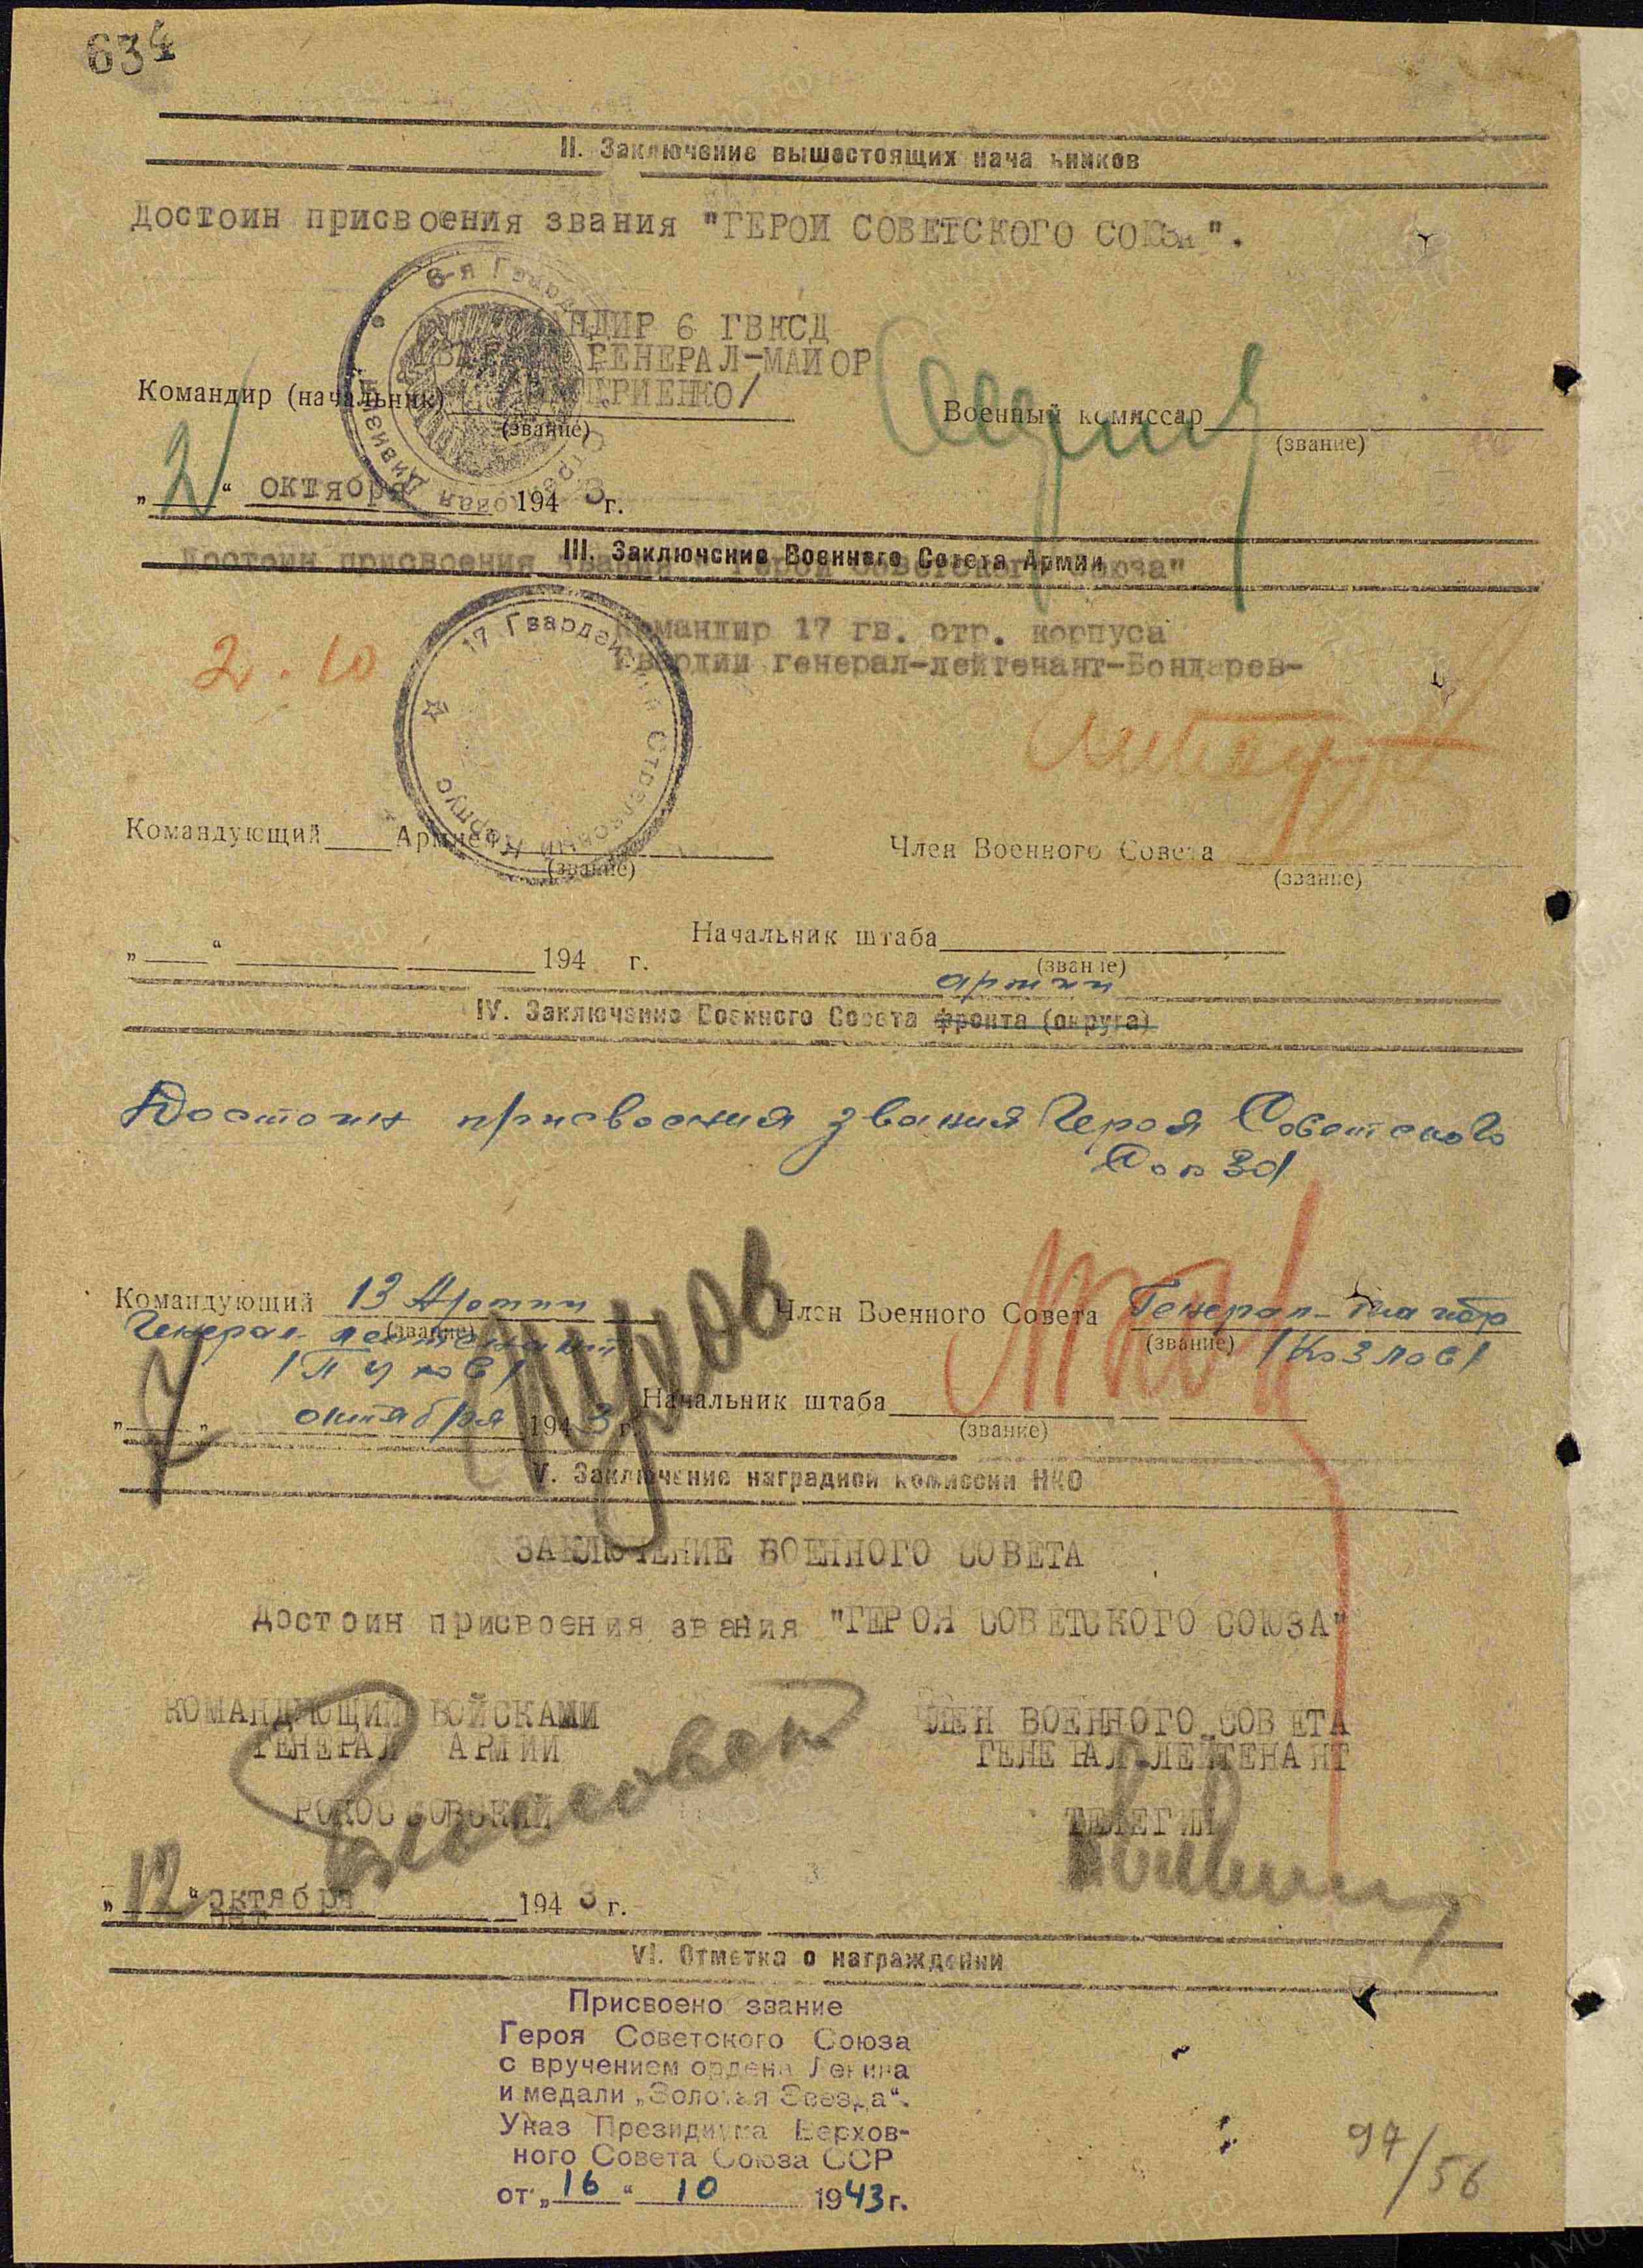 634
II. Заключение вышестоящих нача ьников
Достоин присвоения звания "ГЕРОИ СОВЕТСКОГО СОЮЗА".
КОМАНДИР 6 ГВКСД
ГЕНЕРАЛ-МАИОР
Командир (начальник)
(звание)
Военный комиссар
(звание)
„2“ октября 1943 г.
III. Заключение Военного Совета Армии
Достоин присвоения звания "Герой Советского Союза"
Командир 17 гв. стр. корпуса
Гвардии генерал-лейтенант-Бондарев-
2.10
17 Гвардейский Стрелковый Корпус
Командующий Армией
(звание)
Член Военного Совета
(звание)
Начальник штаба
(звание)
„ “ 194 г.
армии
IV. Заключение Военного Совета фронта (округа)
Достоин присвоения звания Героя Советского
Союза
Командующий 13 Армии
(звание)
Генерал-лейтенант
/Пухов/
Пухов
Член Военного Совета Генерал-майор
(звание) /Козлов/
Начальник штаба
(звание)
„7“ октября 1943 г.
V. Заключение наградной комиссии НКО
ЗАКЛЮЧЕНИЕ ВОЕННОГО СОВЕТА
Достоин присвоения звания "ГЕРОЯ СОВЕТСКОГО СОЮЗА"
КОМАНДУЮЩИЙ ВОЙСКАМИ
ГЕНЕРАЛ АРМИИ
РОКОССОВСКИЙ
ЧЛЕН ВОЕННОГО СОВЕТА
ГЕНЕРАЛ-ЛЕЙТЕНАНТ
ТЕЛЕГИН
„12“ октября 1943 г.
VI. Отметка о награждении
Присвоено звание
Героя Советского Союза
с вручением ордена Ленина
и медали „Золотая Звезда“.
Указ Президиума Верхов-
ного Совета Союза ССР
от „16“ 10 1943 г.
97/56